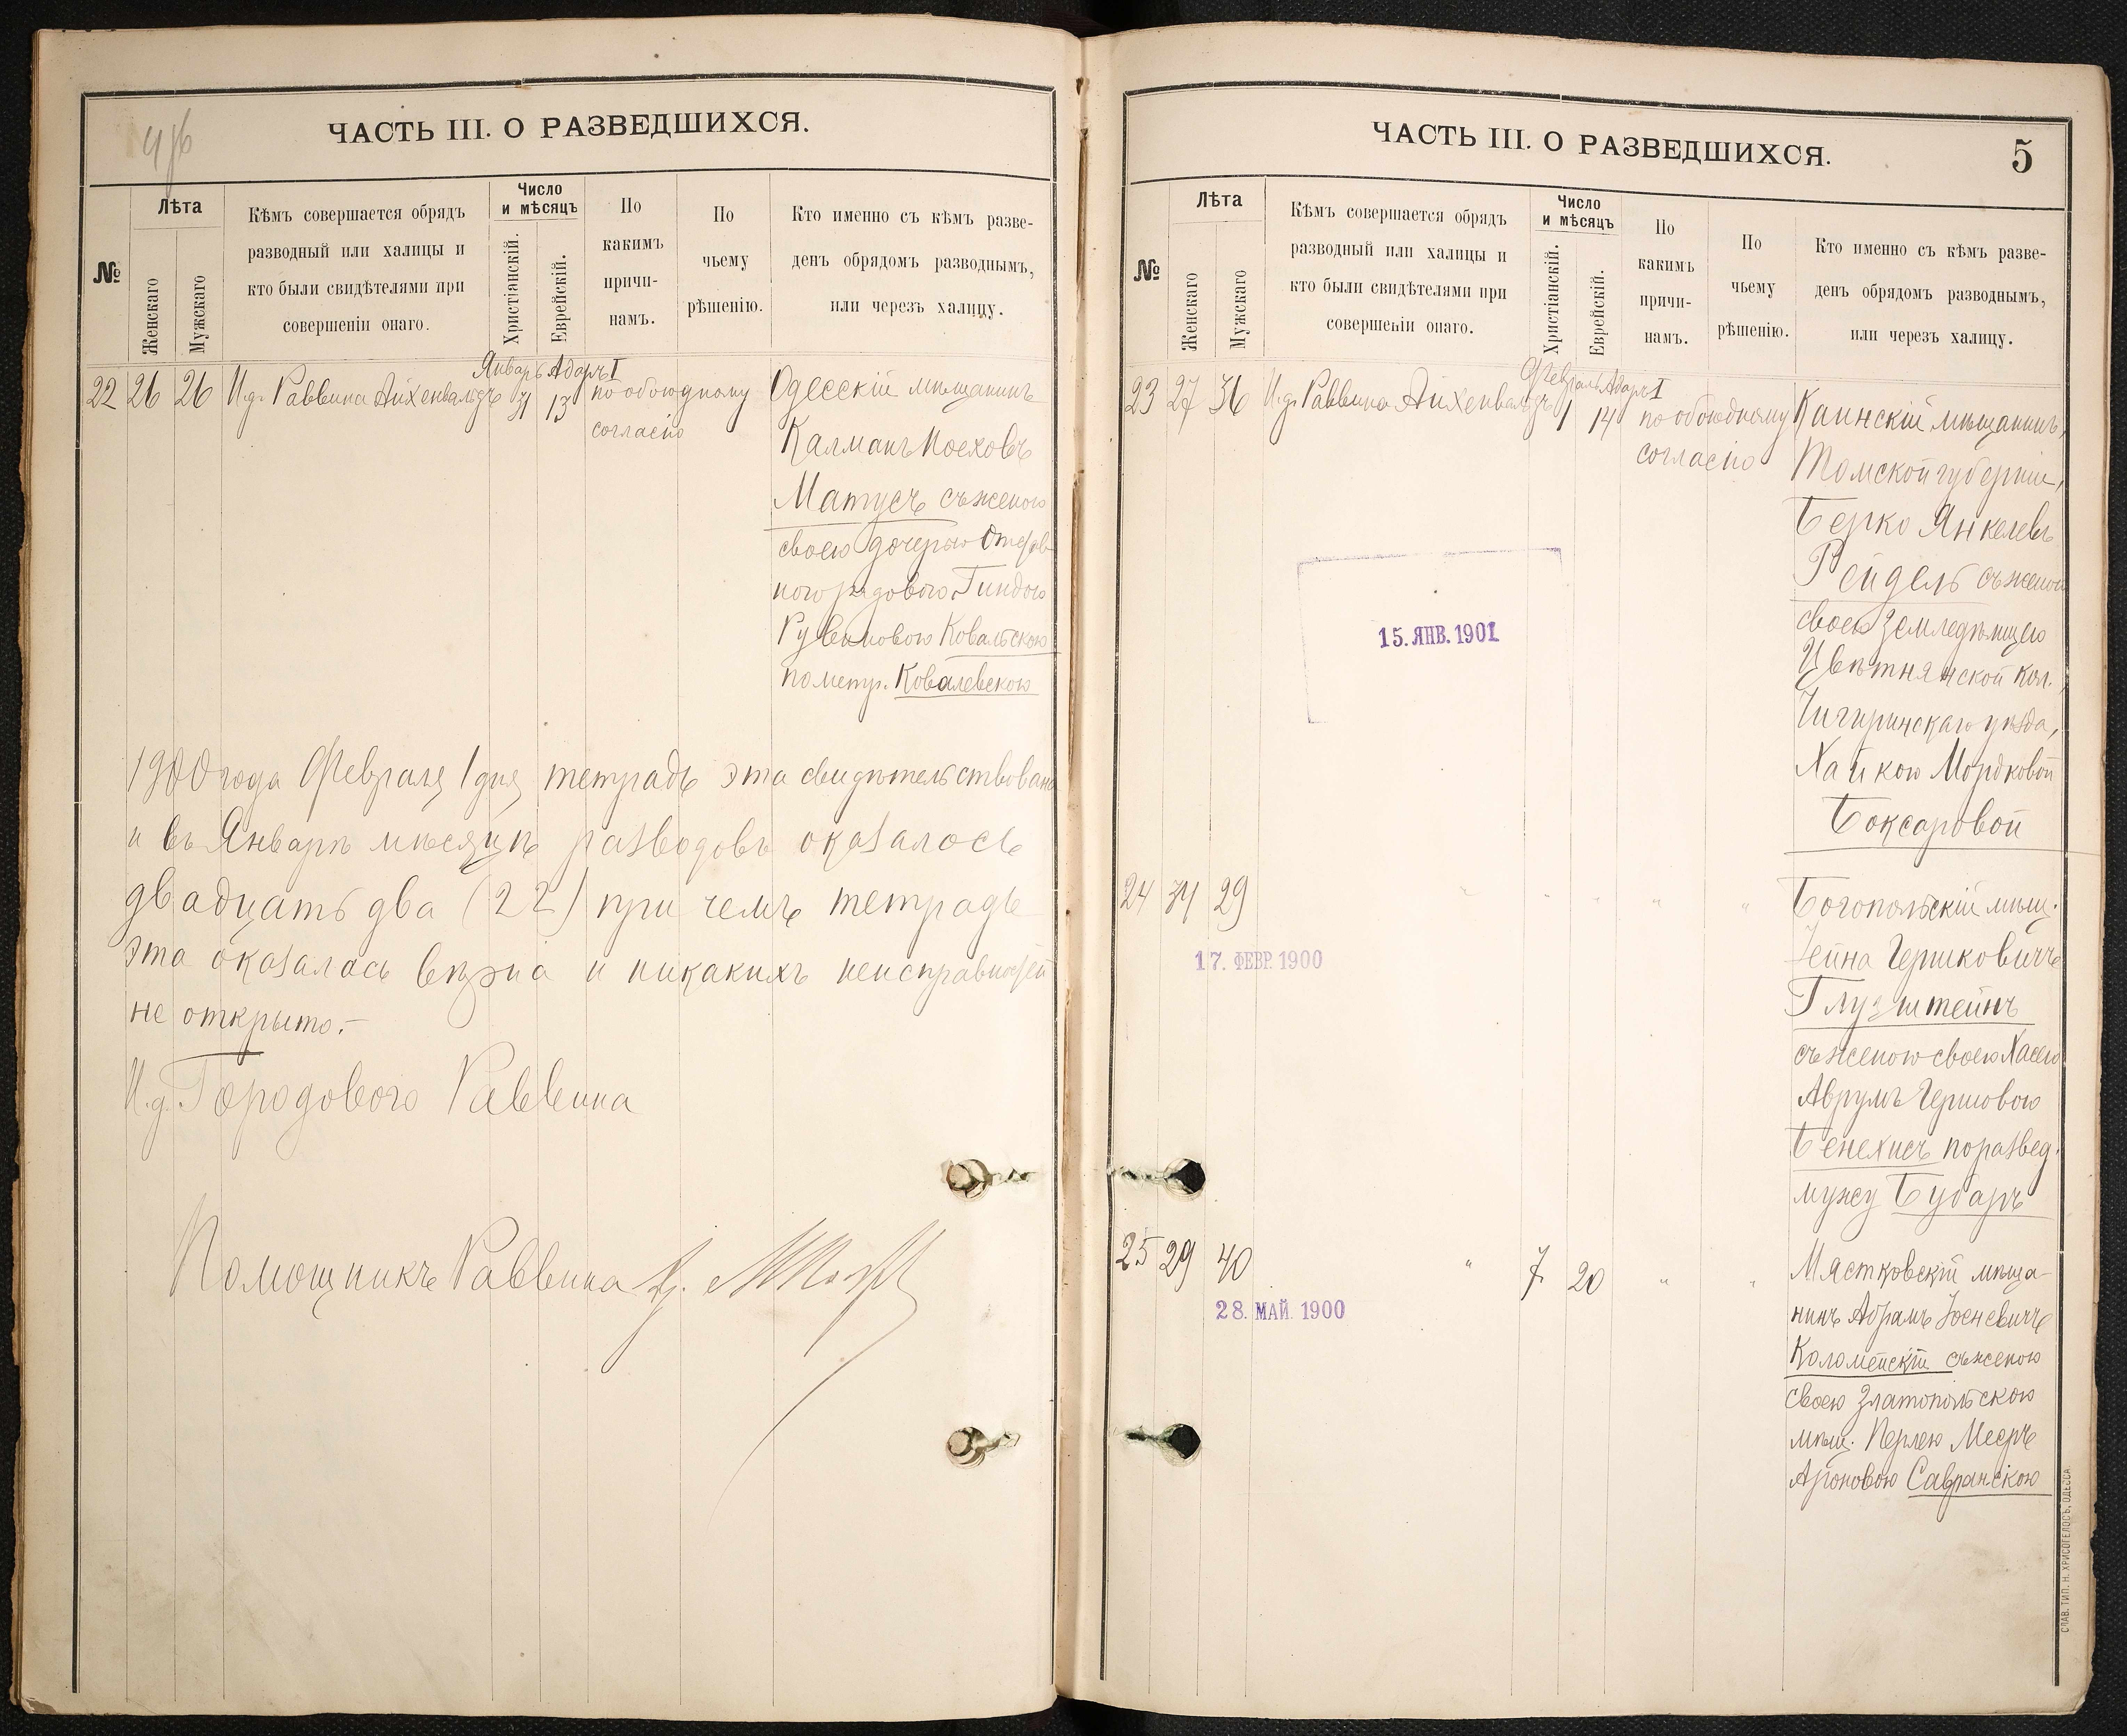 ЧАСТЬ III. О РАЗВЕДШИХСЯ.
№
Лѣта
Женскаго
Мужскаго
Кѣмъ совершается обрядъ
разводный или халицы и
кто были свидѣтелями при
совершеніи онаго.
Число
и мѣсяцъ
Христіанскій.
Еврейскій.
По
какимъ
причи-
намъ.
По
чьему
рѣшенію.
Кто именно съ кѣмъ разве-
денъ обрядомъ разводнымъ,
или черезъ халицу.
Январь Адаръ I
22 26 26 И.д. Раввина Айхенвальдъ 31 13 по обоюдному
согласію
Одесскій мѣщанинъ
Калманъ
Матусъ съ женою
своею дочерью
рядового Гиндою
Рувиновою Ковальскою
по метр. Ковалевскою
1900 года Февраля 1 дня тетрадь эта свидѣтельствована
и въ Январѣ мѣсяцѣ разводовъ оказалось
двадцать два (22) при чемъ тетрадь
эта оказалась вѣрна и никакихъ неисправностей
не открыто.-
И.д. Городового Раввина
Помощникъ Раввина
ЧАСТЬ III. О РАЗВЕДШИХСЯ.
5
№
Лѣта
Женскаго
Мужскаго
Кѣмъ совершается обрядъ
разводный или халицы и
кто были свидѣтелями при
совершеніи онаго.
Число
и мѣсяцъ
Христіанскій.
Еврейскій.
По
какимъ
причи-
намъ.
По
чьему
рѣшенію.
Кто именно съ кѣмъ разве-
денъ обрядомъ разводнымъ,
или черезъ халицу.
Февраль Адаръ I
23 27 36 И.д. Раввина Айхенвальдъ 1 14 по обоюдному
согласію
Каинскій мѣщанинъ,
Томской губерніи,
Берко Янкелевъ
Рейдель съ женою
своею земледѣлицею
Цвѣтнянской кол.,
Чигиринскаго уѣзда,
Хайкою Мордковой
Боксаровой
15. ЯНВ. 1901
24 34 29 " " " " "
Богопольскій мѣщ.
Гершковичъ
Глузштейнъ
съ женою своею Хасею
Аврумъ Гершовою
Бенехисъ по развед.
мужу Бубаръ
17. ФЕВР. 1900
25 29 40 " 7 20 " "
Мястковскій мѣща-
нинъ Абрамъ
Коломейскій съ женою
своею Златопольскою
мѣщ. Перлею Мееръ
Ароновою Савранскою
28. МАЙ. 1900
СЛАВ. ТИП. Н. ХРИСОГЕЛОСЪ, ОДЕССА.